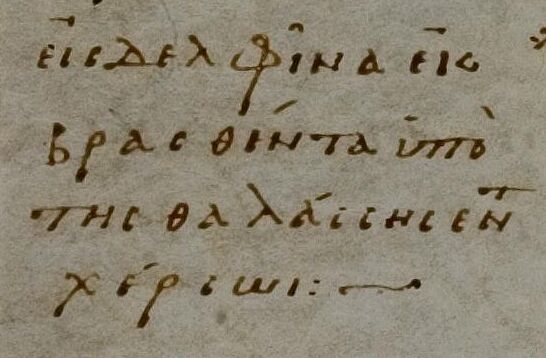 εἰς δελφῖνα ἐκ
βρασθέντα ὑπὸ
τῆς θαλάσσης ἐν
χέρσωι: